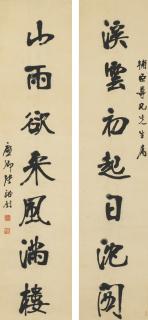 溪雲初起日沈閣
補臣尊兄先生屬
山雨欲來風滿樓
鳳石陸潤庠